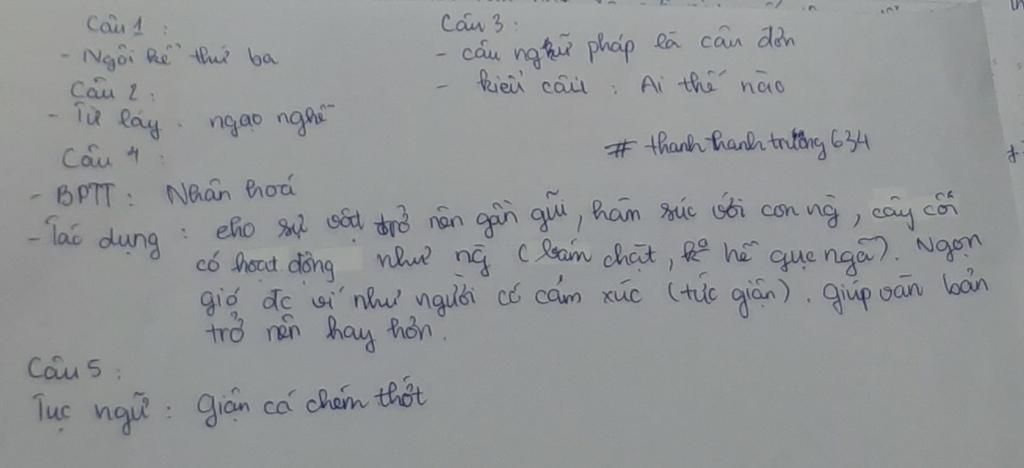 Câu 1 :
- Ngôi kể thứ ba
Câu 2 :
- Từ láy : ngạo nghễ
Câu 3 :
- cấu ngữ pháp là câu đơn
- kiểu câu : Ai thế nào
# thanhthanhtrường634
Câu 4 :
- BPTT : Nhân hoá
- Tác dụng : cho sự vật trở nên gần gũi, hàm súc với con ng`, cây cối
có hoạt động như ng` (bám chặt, ko hề gục ngã). Ngọn
gió đc ví như người có cảm xúc (tức giận). giúp văn bản
trở nên hay hơn.
Câu 5 :
Tục ngữ : Giận cá chém thớt